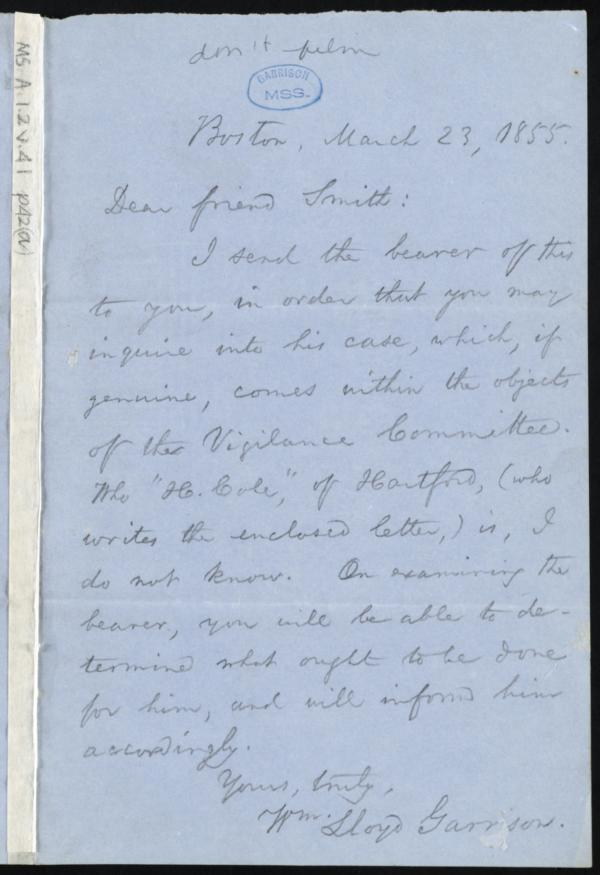 don't film
GARRISON
MSS.
Boston, March 23, 1855.
Dear friend Smith:
I send the bearer of this
to you, in order that you may
inquire into his case, which, if
genuine, comes within the objects
of the Vigilance Committee.
Who "H. Cole," of Hartford, (who
writes the enclosed letter,) is, I
do not know. On examining the
bearer, you will be able to de-
termine what ought to be done
for him, and will inform him
accordingly.
Yours, truly,
Wm. Lloyd Garrison.
MS. A. 1.2 v.41 p42(a)